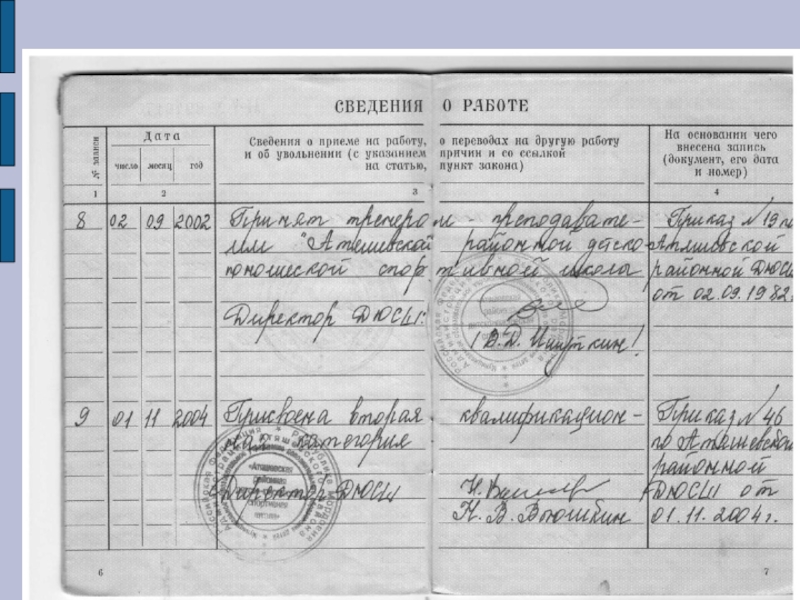 СВЕДЕНИЯ О РАБОТЕ
№ записи
Дата
число месяц год
Сведения о приеме на работу, о переводах на другую работу
и об увольнении (с указанием причин и со ссылкой
на статью, пункт закона)
На основании чего
внесена запись
(документ, его дата
и номер)
1 2 3 4
8 02 09 2002 Принят тренером - преподавате- Приказ №19 по
лем "Атяшевской районной детско- Атяшевской
юношеской спортивной школы районной ДЮСШ
от 02.09.1982г.
Директор ДЮСШ:
/В.Д. Ишуткин/
9 01 11 2004 Присвоена вторая квалификацион- Приказ №46
ная категория по Атяшевской
районной
Директор ДЮСШ ДЮСШ от
Н.В. Вьюшкин 01.11.2004г.
6 7